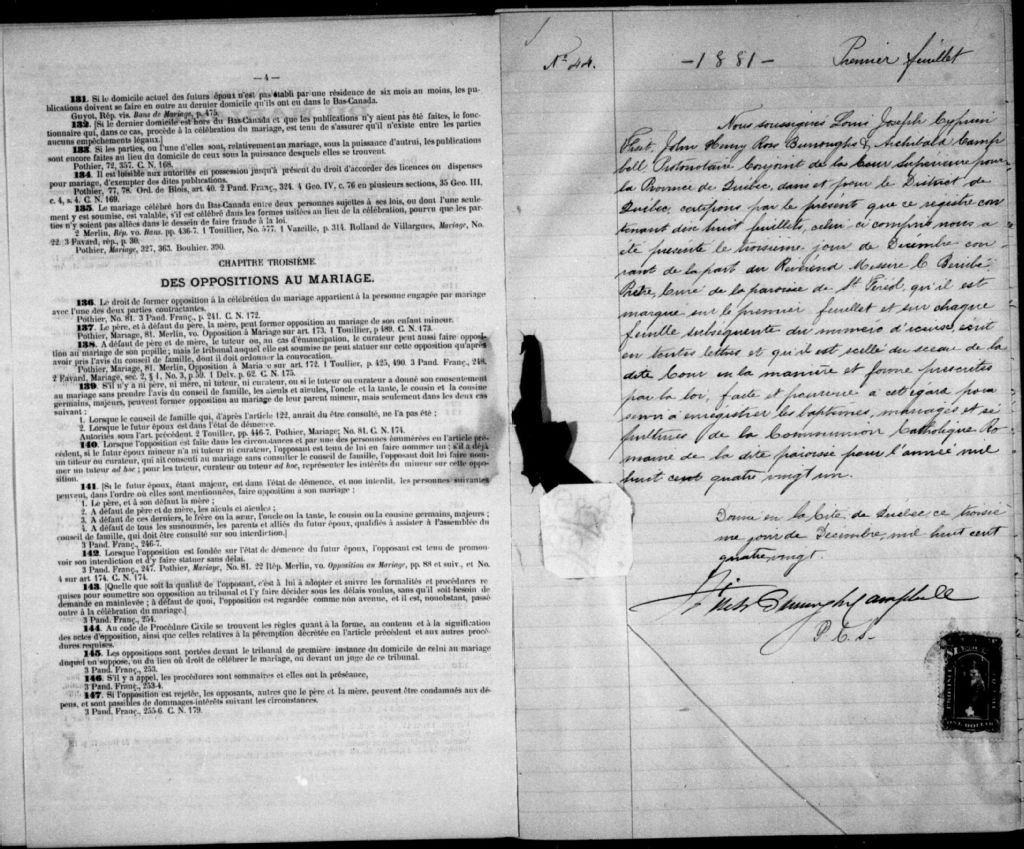 —4—
131. Si le domicile actuel des futurs époux n'est pas établi par une résidence de six mois au moins, les pu-
blications doivent se faire en outre au dernier domicile qu'ils ont eu dans le Bas-Canada.
Guyot, Rép. vis. Bans de Mariage, p. 475.
132. [Si le dernier domicile est hors du Bas-Canada et que les publications n'y aient pas été faites, le fonc-
tionnaire qui, dans ce cas, procède à la célébration du mariage, est tenu de s'assurer qu'il n'existe entre les parties
aucuns empêchements légaux.]
133. Si les parties, ou l'une d'elles sont, relativement au mariage, sous la puissance d'autrui, les publications
sont encore faites au lieu du domicile de ceux sous la puissance desquels elles se trouvent.
Pothier, 72, 357. C. N. 168.
134. Il est loisible aux autorités en possession jusqu'à présent du droit d'accorder des licences ou dispenses
pour mariage, d'exempter des dites publications.
Pothier, 77, 78. Ord. de Blois, art. 40. 2 Pand. Franç., 324. 4 Geo. IV, c. 76 en plusieurs sections, 35 Geo. III,
c. 4, s. 4. C. N. 169.
135. Le mariage célébré hors du Bas-Canada entre deux personnes sujettes à ses lois, ou dont l'une seule-
ment y est soumise, est valable, s'il est célébré dans les formes usitées au lieu de la célébration, pourvu que les par-
ties n'y soient pas allées dans le dessein de faire fraude à la loi.
2 Merlin, Rép. vo. Bans. pp. 436-7. 1 Touillier, No. 577. 1 Vazeille, p. 314. Rolland de Villargues, Mariage, No.
22. 3 Favard, rép., p. 30.
Pothier, Mariage, 327, 363. Bouhier. 390.
CHAPITRE TROISIÈME.
DES OPPOSITIONS AU MARIAGE.
136. Le droit de former opposition à la célébration du mariage appartient à la personne engagée par mariage
avec l'une des deux parties contractantes.
Pothier, No. 81. 3 Pand. Franç., p. 241. C. N. 172.
137. Le père, et à défaut du père, la mère, peut former opposition au mariage de son enfant mineur.
Pothier, Mariage, 81. Merlin, vo. Opposition à Mariage sur art. 173. 1 Touillier, p 489. C. N. 173.
138. A défaut de père et de mère, le tuteur ou, au cas d'émancipation, le curateur peut aussi faire opposi-
tion au mariage de son pupille; mais le tribunal auquel elle est soumise ne peut statuer sur cette opposition qu'après
avoir pris l'avis du conseil de famille, dont il doit ordonner la convocation.
Pothier, Mariage, 81. Merlin, Opposition à Mariage sur art. 172. 1 Toullier, p. 425, 490. 3 Pand. Franç., 248.
2 Favard, Mariage, sec. 2, § 1, No. 3, p. 59. 1 Delv. p. 62. C. N. 175.
139. S'il n'y a ni père, ni mère, ni tuteur, ni curateur, ou si le tuteur ou curateur a donné son consentement
au mariage sans prendre l'avis du conseil de famille, les aïeuls et aïeules, l'oncle et la tante, le cousin et la cousine
germains, majeurs, peuvent former opposition au mariage de leur parent mineur, mais seulement dans les deux cas
suivant :
1. Lorsque le conseil de famille qui, d'après l'article 122, aurait du être consulté, ne l'a pas été ;
2. Lorsque le futur époux est dans l'état de démence.
Autorités sous l'art. précédent. 2 Touiller, pp. 446-7. Pothier, Mariage; No. 81. C. N. 174.
140. Lorsque l'opposition est faite dans les circonstances et par une des personnes énumérées en l'article pré-
cédent, si le futur époux mineur n'a ni tuteur ni curateur, l'opposant est tenu de lui en faire nommer un ; s'il a déjà
un tuteur ou curateur, qui ait consenti au mariage sans consulter le conseil de famille, l'opposant doit lui faire nom-
mer un tuteur ad hoc ; pour les tuteur, curateur ou tuteur ad hoc, représenter les intérêts du mineur sur cette oppo-
sition.
141. [Si le futur époux, étant majeur, est dans l'état de démence, et non interdit, les personnes suivantes
peuvent, dans l'ordre où elles sont mentionnées, faire opposition à son mariage :
1. Le père, et à son défaut la mère ;
2. A défaut de père et de mère, les aïeuls et aïeules ;
3. A défaut de ces derniers, le frère ou la sœur, l'oncle ou la tante, le cousin ou la cousine germains, majeurs ;
4. A défaut de tous les susnommés, les parents et alliés du futur époux, qualifiés à assister à l'assemblée du
conseil de famille, qui doit être consulté sur son interdiction.]
3 Pand. Franç., 246-7.
142. Lorsque l'opposition est fondée sur l'état de démence du futur époux, l'opposant est tenu de promou-
voir son interdiction et d'y faire statuer sans délai.
3 Pand. Franç., 247. Pothier, Mariage, No. 81. 22 Rép. Merlin, vo. Opposition au Mariage, pp. 88 et suiv., et No.
4 sur art. 174. C. N. 174.
143. [Quelle que soit la qualité de l'opposant, c'est à lui à adopter et suivre les formalités et procédures re-
quises pour soumettre son opposition au tribunal et l'y faire décider sous les délais voulus, sans qu'il soit besoin de
demande en mainlevée ; à défaut de quoi, l'opposition est regardée comme non avenue, et il est, nonobstant, passé
outre à la célébration du mariage.]
3 Pand. Franç., 254.
144. Au code de Procédure Civile se trouvent les règles quant à la forme, au contenu et à la signification
des actes d'opposition, ainsi que celles relatives à la péremption décrétée en l'article précédent et aux autres procé-
dures requises.
145. Les oppositions sont portées devant le tribunal de première instance du domicile de celui au mariage
duquel on suppose, ou du lieu où droit de célébrer le mariage, ou devant un juge de ce tribunal.
3 Pand. Franç., 253.
146. S'il y a appel, les procédures sont sommaires et elles ont la préséance,
3 Pand. Franç., 253-4.
147. Si l'opposition est rejetée, les opposants, autres que le père et la mère, peuvent être condamnés aux dé-
pens, et sont passibles de dommages-intérêts suivant les circonstances.
3 Pand. Franç., 255-6. C. N. 179.
No 44. -1881- Premier feuillet
Nous soussignés Louis Joseph Cyprien
Fiset, John Henry Ross Burroughs & Archibald Camp
bell Protonotaire Conjoint de la Cour Supérieure pour
la Province de Québec, dans et pour le District de
Québec, certifions par le présent que ce registre con
tenant dix huit feuillets, celui ci compris nous a
été présenté le troisième jour de Décembre cou
rant de la part du Révérend Messire C. Bérubé
Prêtre, Curé de la paroisse de St Féréol, qu'il est
marqué sur le premier feuillet et sur chaque
feuille subséquente du numéro d'icelui, écrit
en toutes lettres et qu'il est scellé du sceau de la
dite Cour en la manière et forme prescrites
par la loi, faite et pourvue à cet égard pour
servir à enregistrer les baptêmes, mariages et sé
pultures de la Communion Catholique Ro
maine de la dite paroisse pour l'année mil
huit cent quatre vingt un.
Donné en la Cité de Québec, ce troisiè
me jour de Décembre, mil huit cent
quatre vingt.
Fiset Burroughs Campbell
P. C. S.
ONE DOLLAR